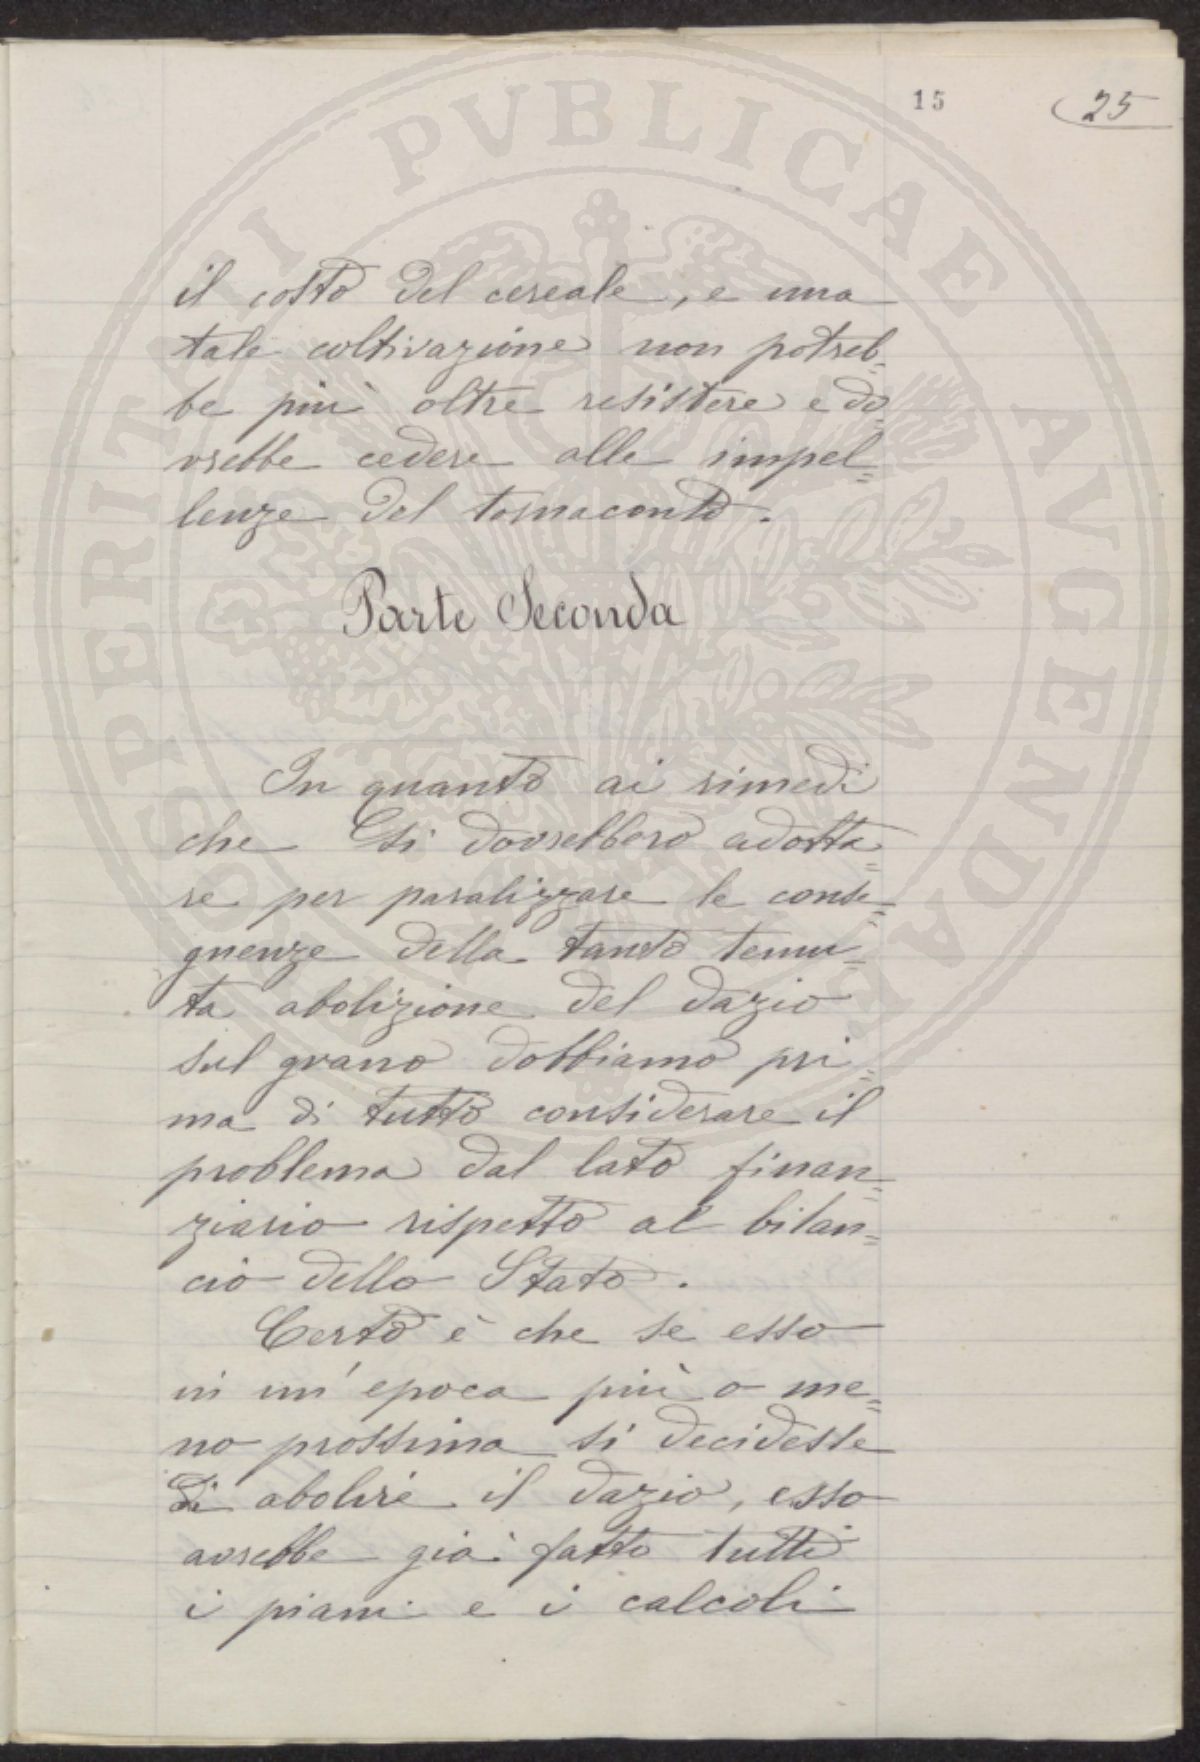 15
25
il costo del cereale, e una
tale coltivazione non potreb=
be più oltre resistere e do=
vrebbe cedere alle impel=
lenze del tornaconto.
Parte Seconda
In quanto ai rimedi
che si dovrebbero adotta=
re per paralizzare le conse=
guenze della tanto temu=
ta abolizione del dazio
sul grano dobbiamo pri=
ma di tutto considerare il
problema dal lato finan=
ziario rispetto al bilan=
cio dello Stato.
Certo è che se esso
in un'epoca più o me=
no prossima si decidesse
di abolire il dazio, esso
avrebbe già fatto tutti
i piani e i calcoli
PROSPERITATI PVBLICAE AVGENDAE